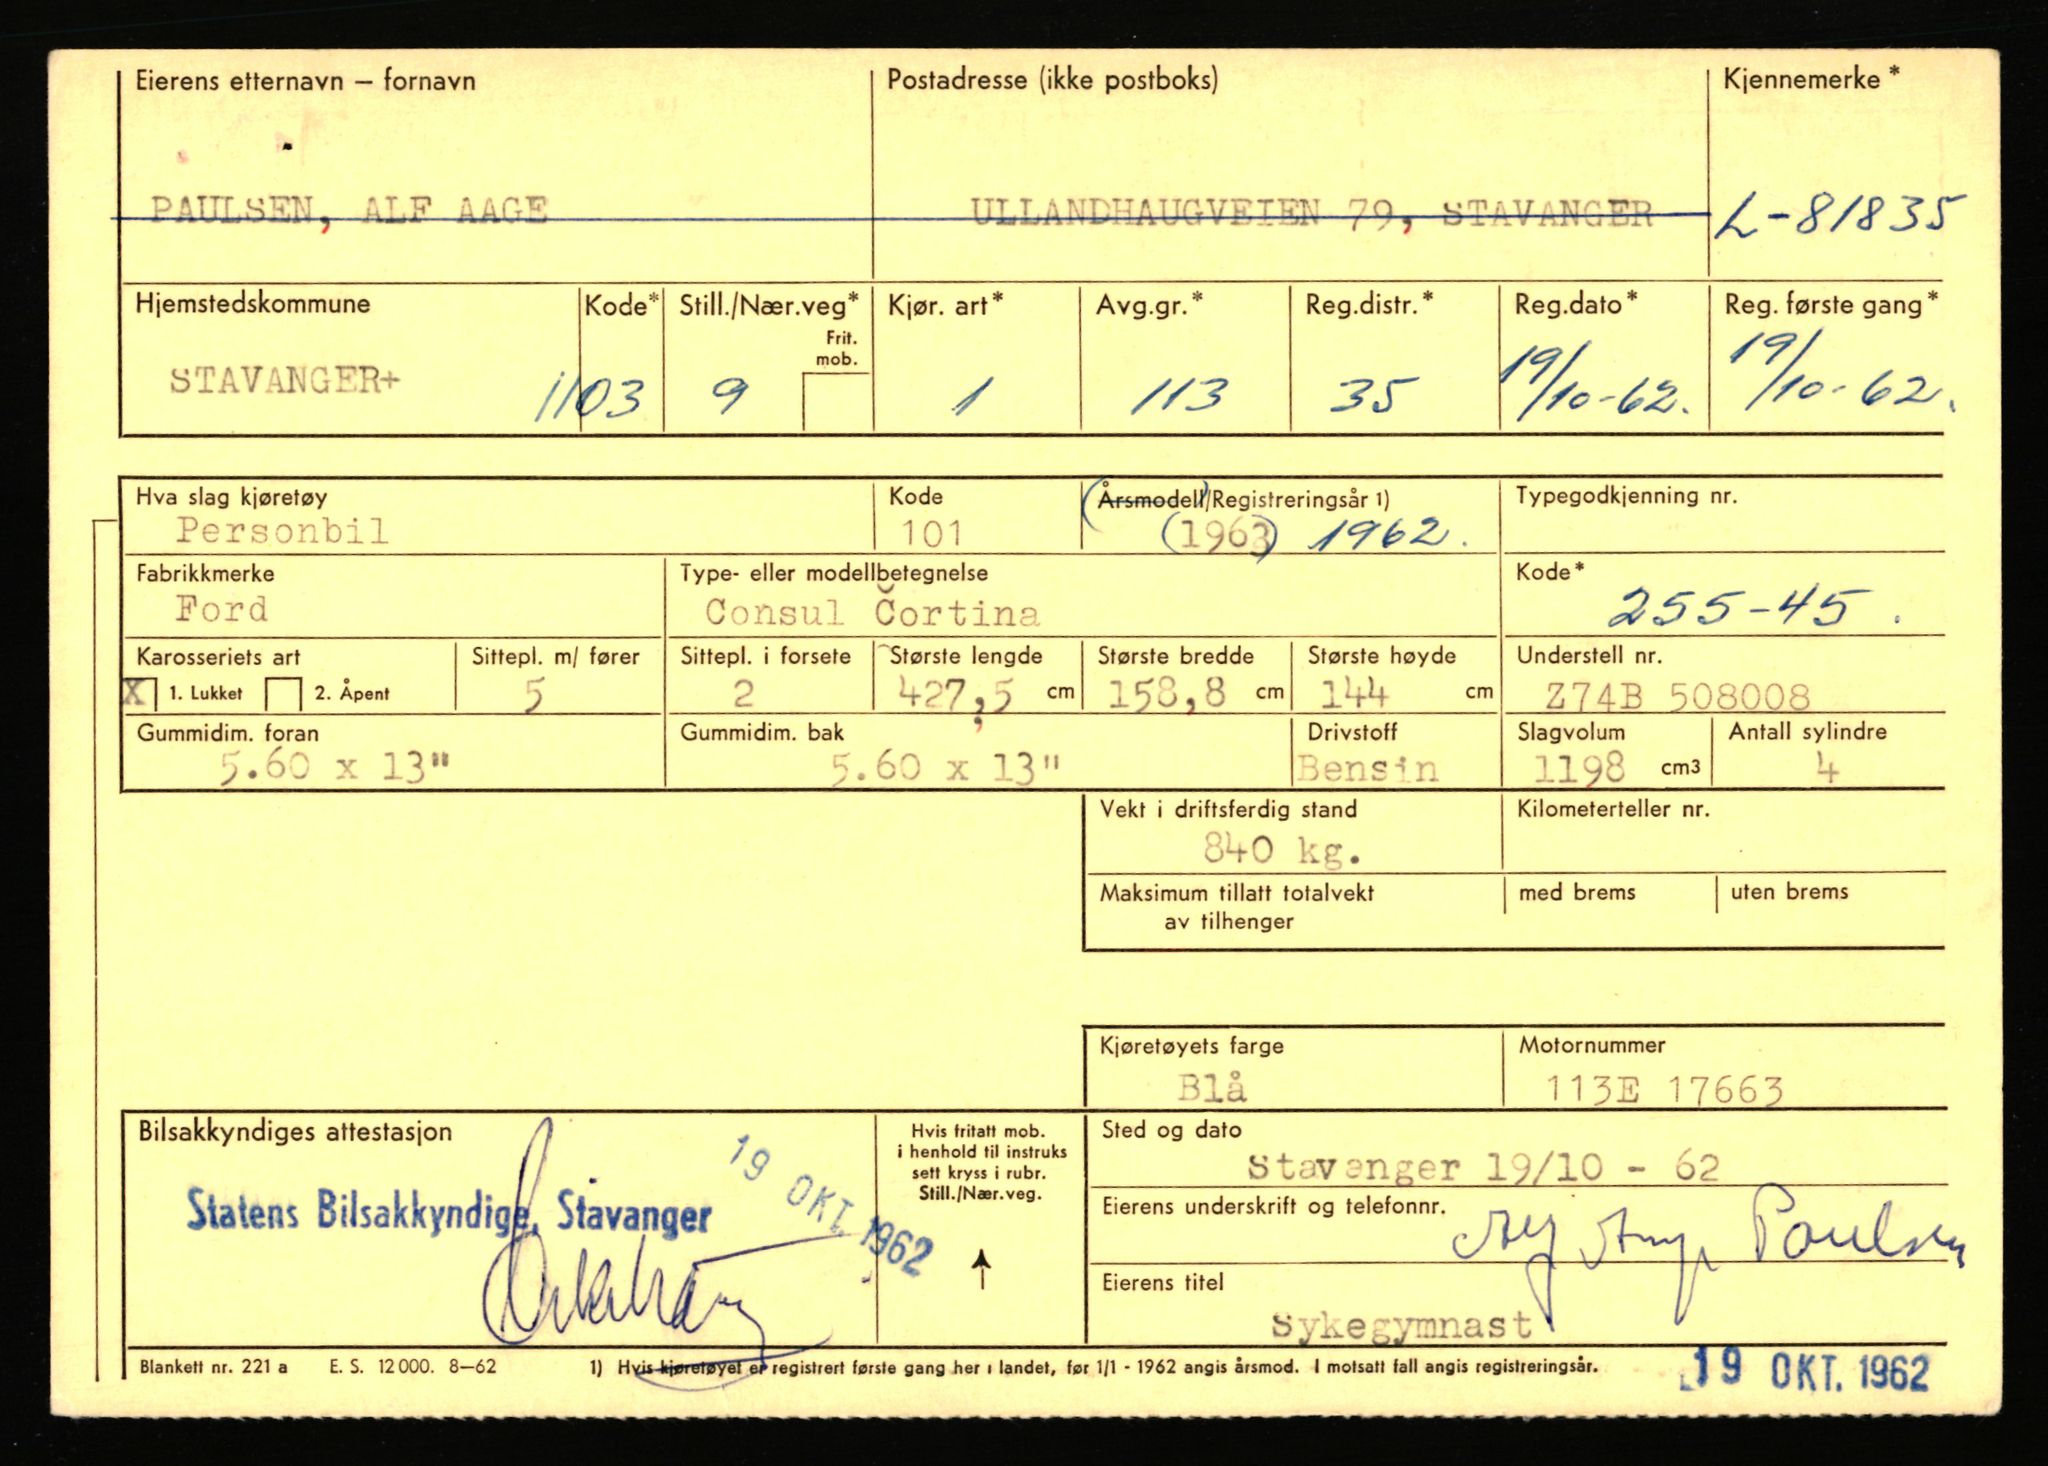 Eierens etternavn – fornavn Postadresse (ikke postboks) Kjennemerke*
PAULSEN, ALF AAGE ULLANDHAUGVEIEN 79, STAVANGER L-81835
Hjemstedskommune Kode* Still./Nær.veg* Kjør. art* Avg.gr.* Reg.distr.* Reg.dato* Reg. første gang*
Frit.
mob.
STAVANGER+ 1103 9 1 113 35 19/10-62. 19/10-62.
Hva slag kjøretøy Kode (Årsmodell)/Registreringsår 1) Typegodkjenning nr.
Personbil 101 (1963) 1962.
Fabrikkmerke Type- eller modellbetegnelse Kode*
Ford Consul Cortina 255-45.
Karosseriets art Sittepl. m/ fører Sittepl. i forsete Største lengde Største bredde Største høyde Understell nr.
X 1. Lukket 2. Åpent 5 2 427,5 cm 158,8 cm 144 cm Z74B 508008
Gummidim. foran Gummidim. bak Drivstoff Slagvolum Antall sylindre
5.60 x 13" 5.60 x 13" Bensin 1198 cm3 4
Vekt i driftsferdig stand Kilometerteller nr.
840 kg.
Maksimum tillatt totalvekt med brems uten brems
av tilhenger
Kjøretøyets farge Motornummer
Blå 113E 17663
Bilsakkyndiges attestasjon Hvis fritatt mob. Sted og dato
i henhold til instruks
sett kryss i rubr.
Still./Nær.veg.
19 OKT. 1962
Stavanger 19/10 - 62
Statens Bilsakkyndige, Stavanger
Eierens underskrift og telefonnr. Alf Aage Paulsen
Eierens titel
Sykegymnast
Blankett nr. 221 a E. S. 12 000. 8–62 1) Hvis kjøretøyet er registrert første gang her i landet, før 1/1 - 1962 angis årsmod. I motsatt fall angis registreringsår.
19 OKT. 1962